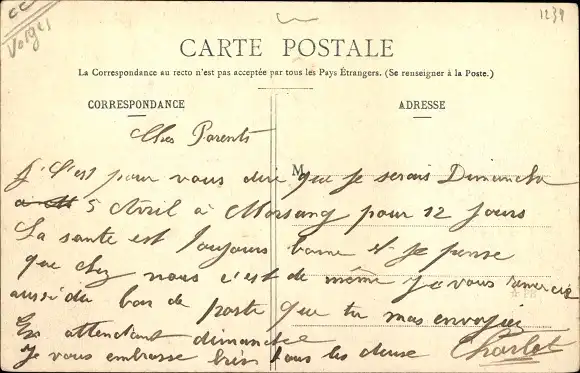 CC
Vosges
1239
CARTE POSTALE
La Correspondance au recto n'est pas acceptée par tous les Pays Étrangers. (Se renseigner à la Poste.)
CORRESPONDANCE
ADRESSE
M
Cher Parents
C'est pour vous dire que je serais Dimanche
5 Avril à Morsang pour 12 Jours
La santé est Toujours bonne et je pense
que chez nous c'est de même Je vous remercie
aussi du bon de poste que tu mas envoyez
En attendant dimanche
Je vous embrasse bien tous les deuse Charlot